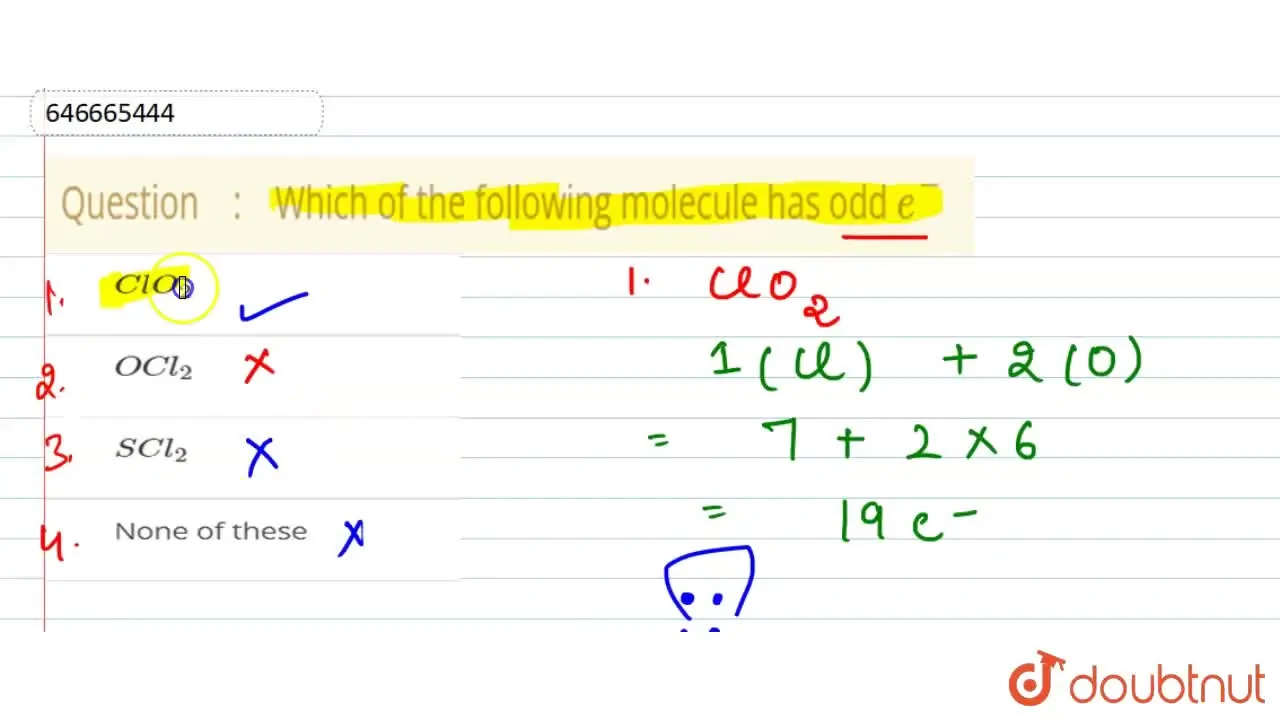 646665444
Question : Which of the following molecule has odd e⁻
1. ClO
2. OCl₂ ×
3. SCl₂ ×
4. None of these ×
1. ClO₂
1 (Cl) + 2 (O)
= 7 + 2 × 6
= 19 e⁻
doubtnut